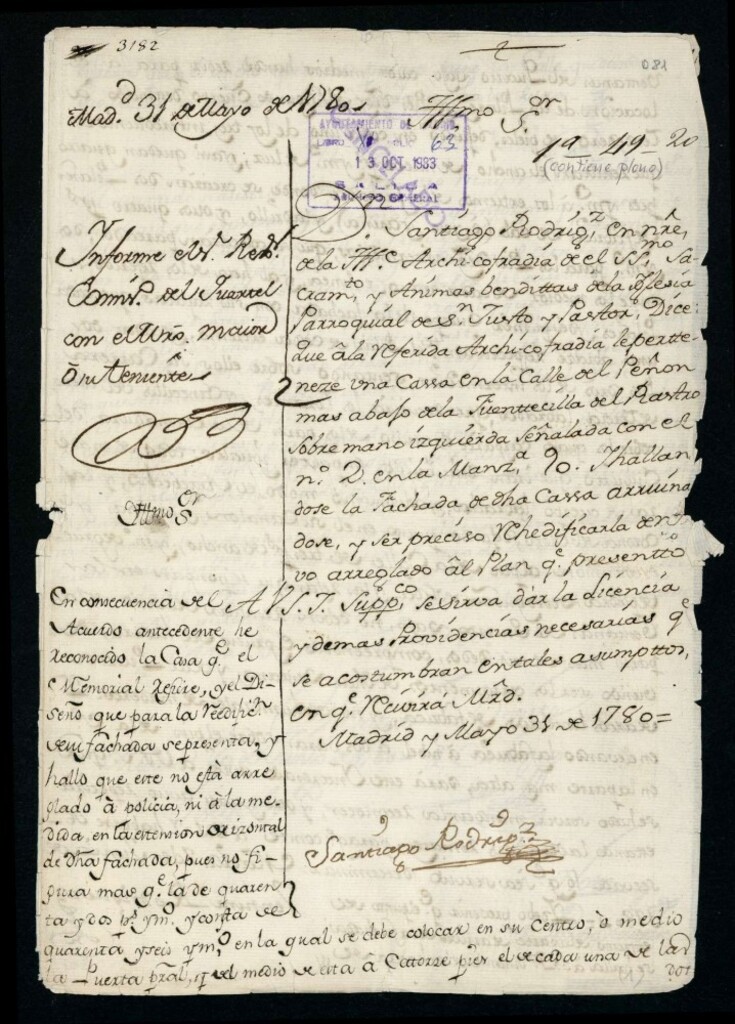 3182
081
Mad.d 31 de Mayo de 1780
Illmo S.or
AYUNTAMIENTO DE
13 OCT. 1983
63
1a-49-20
(contiene plano)
Informe el S.r Rex.r
Comis.o del Quartel
con el Mro. maior
ô su teniente
Illmo S.or
En consecuencia del
Acuerdo antecedente he
reconocido la Casa q.e el
Memorial refiere, y el Di-
seño que para la reedific.n
de su fachada se presenta, y
hallo que este no està arre
glado à policia, ni à la me-
dida, en la estension orizontal
de dha fachada, pues no fi-
gura mas q.e la de quaren
ta y dos p.s y m.o y consta de
quarenta y seis y m.o en la qual se debe colocar en su Centro, ò medio
la Puerta pral, q.e del medio de esta à Catorze pies el de cada una de las
dos
D. Santiago Rodrig.z en nre,
de la Ill.e Archi-cofradia de el SS.mo Sa-
cram.to, y Animas bendittas de la Iglesia
Parroquial de S.n Justo y Pastor, Dice:
que â la referida Archi-cofradia le pertte-
neze una Cassa en la Calle del Peñon
mas abajo de la Fuentecilla del Rastro
sobre mano izquierda señalada con el
n.o 2. en la Manz.a 90. Y hallan
dose la Fachada de dha Cassa arruina
dose, y ser preciso rehedificarla de nue
vo arreglado âl Plan q.e presentto
A V.S.I. Supp.co se sirva dar la Licencia
y demas Providencias necesarias q.e
se acostumbran en tales asumpttos,
en q.e recivirá Mrd.
Madrid y Mayo 31 de 1780=
Santiago Rodrig.z